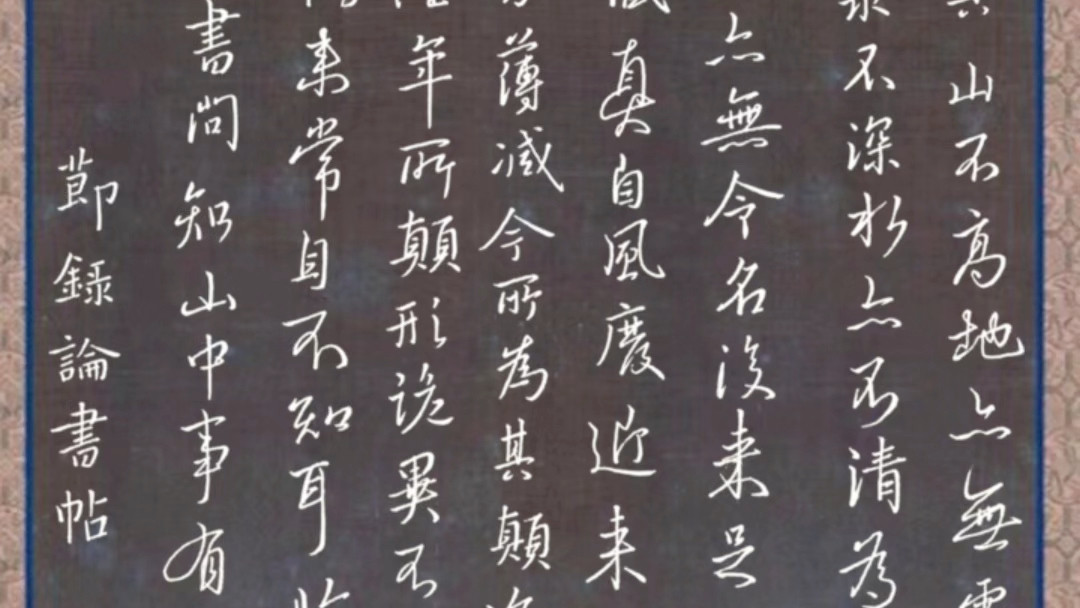 山不高地亦無
不深水亦不清為
亦無令名後來足
真自風廢近來
薄減今所為其顛
年所顛形詭異不
来常自不知耳
書問知山中事有
節錄論書帖